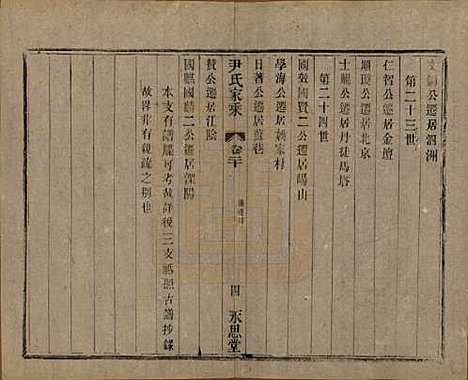 文□公遷居泗洲
第二十三世
仁智公遷居金壇
順現公遷居北京
士顯公遷居丹徒馬塔
第二十四世
國效國賢二公遷居嶧山
尹氏家乘 卷二十 四 永思堂
學海公遷居顧家村
日著公遷居董巷
贊公遷居江陰
國麒國麟二公遷居溧陽
本支有譜牒可考故詳後二支祗照古譜抄錄
故畧非有親疏之別也